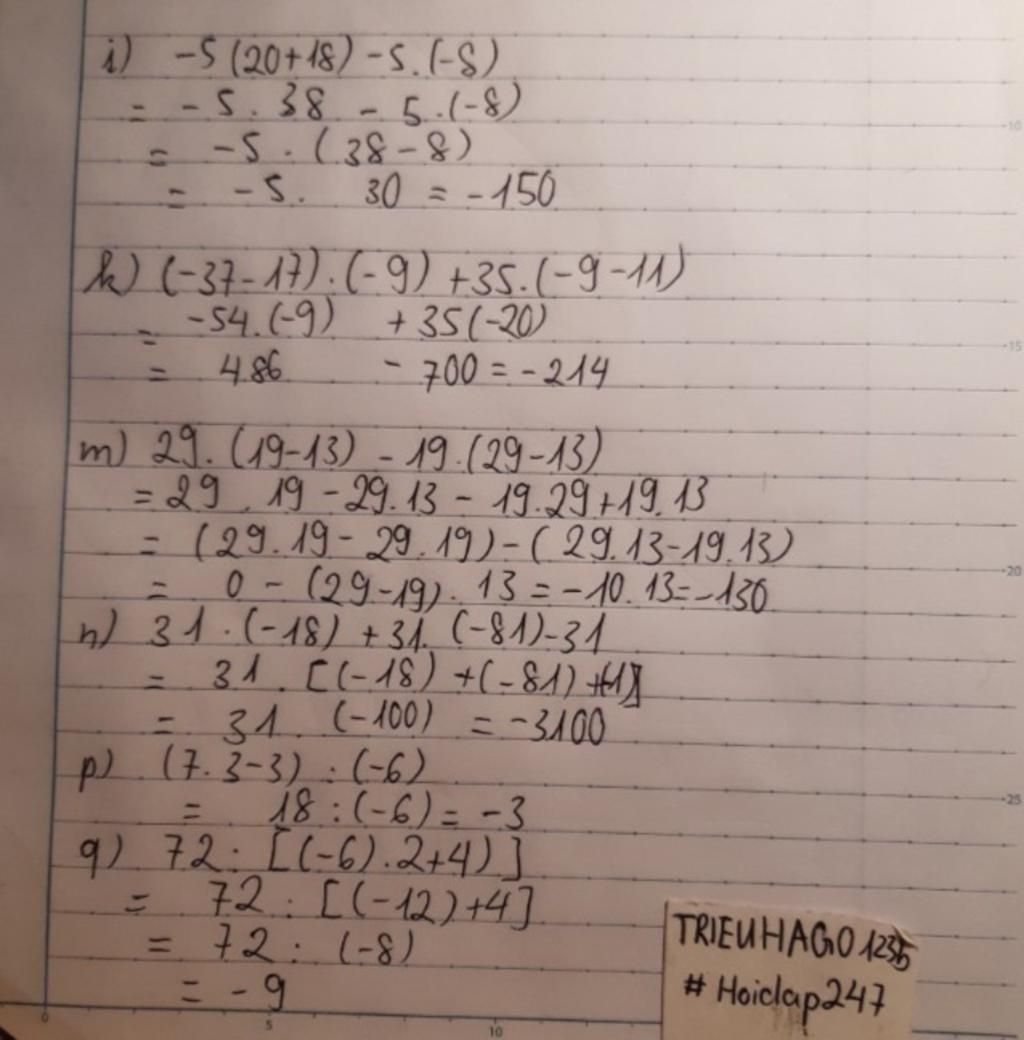 i) -5(20+18)-5.(-8)
= -5.38 - 5.(-8)
= -5.(38-8)
= -5. 30 = -150
k) (-37-17).(-9)+35.(-9-11)
= -54.(-9) +35(-20)
= 486 - 700 = -214
m) 29.(19-13) - 19.(29-13)
= 29.19 - 29.13 - 19.29+19.13
= (29.19 - 29.19) - (29.13-19.13)
= 0 - (29-19). 13 = -10.13 = -130
n) 31.(-18) + 31.(-81)-31
= 31.[(-18) +(-81) +(-1)]
= 31 (-100) = -3100
p) (7.3-3) : (-6)
= 18 : (-6) = -3
q) 72: [(-6).2+4)]
= 72 : [(-12)+4]
= 72 : (-8)
= -9
TRIEUHAGO1235
# Hoidap247
10
15
20
25
0 5 10